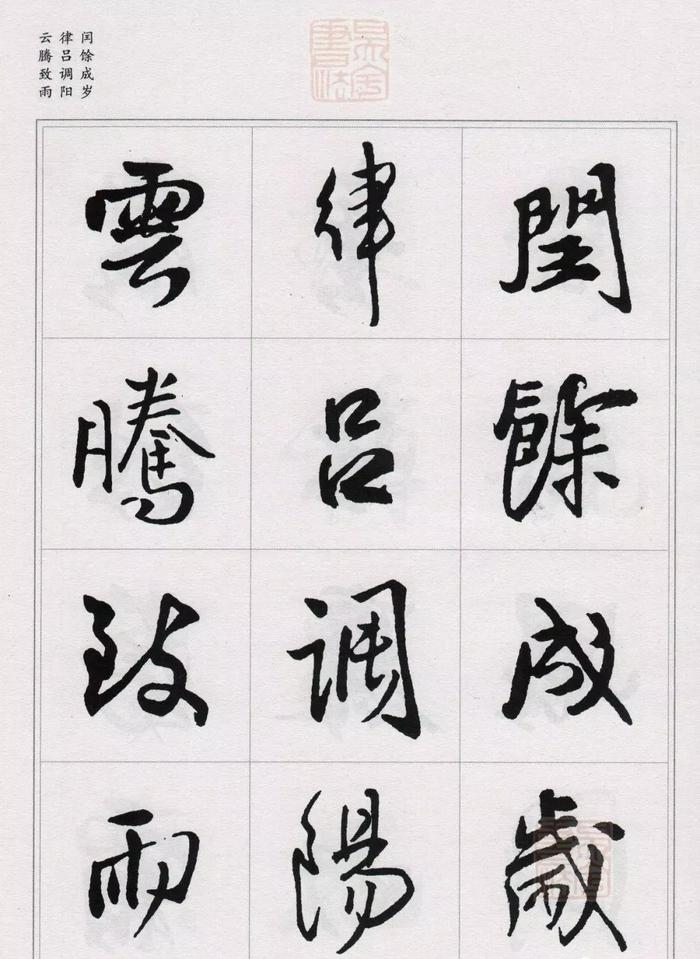 闰馀成岁
律吕调阳
云腾致雨
閏餘成歲
律呂調陽
雲騰致雨